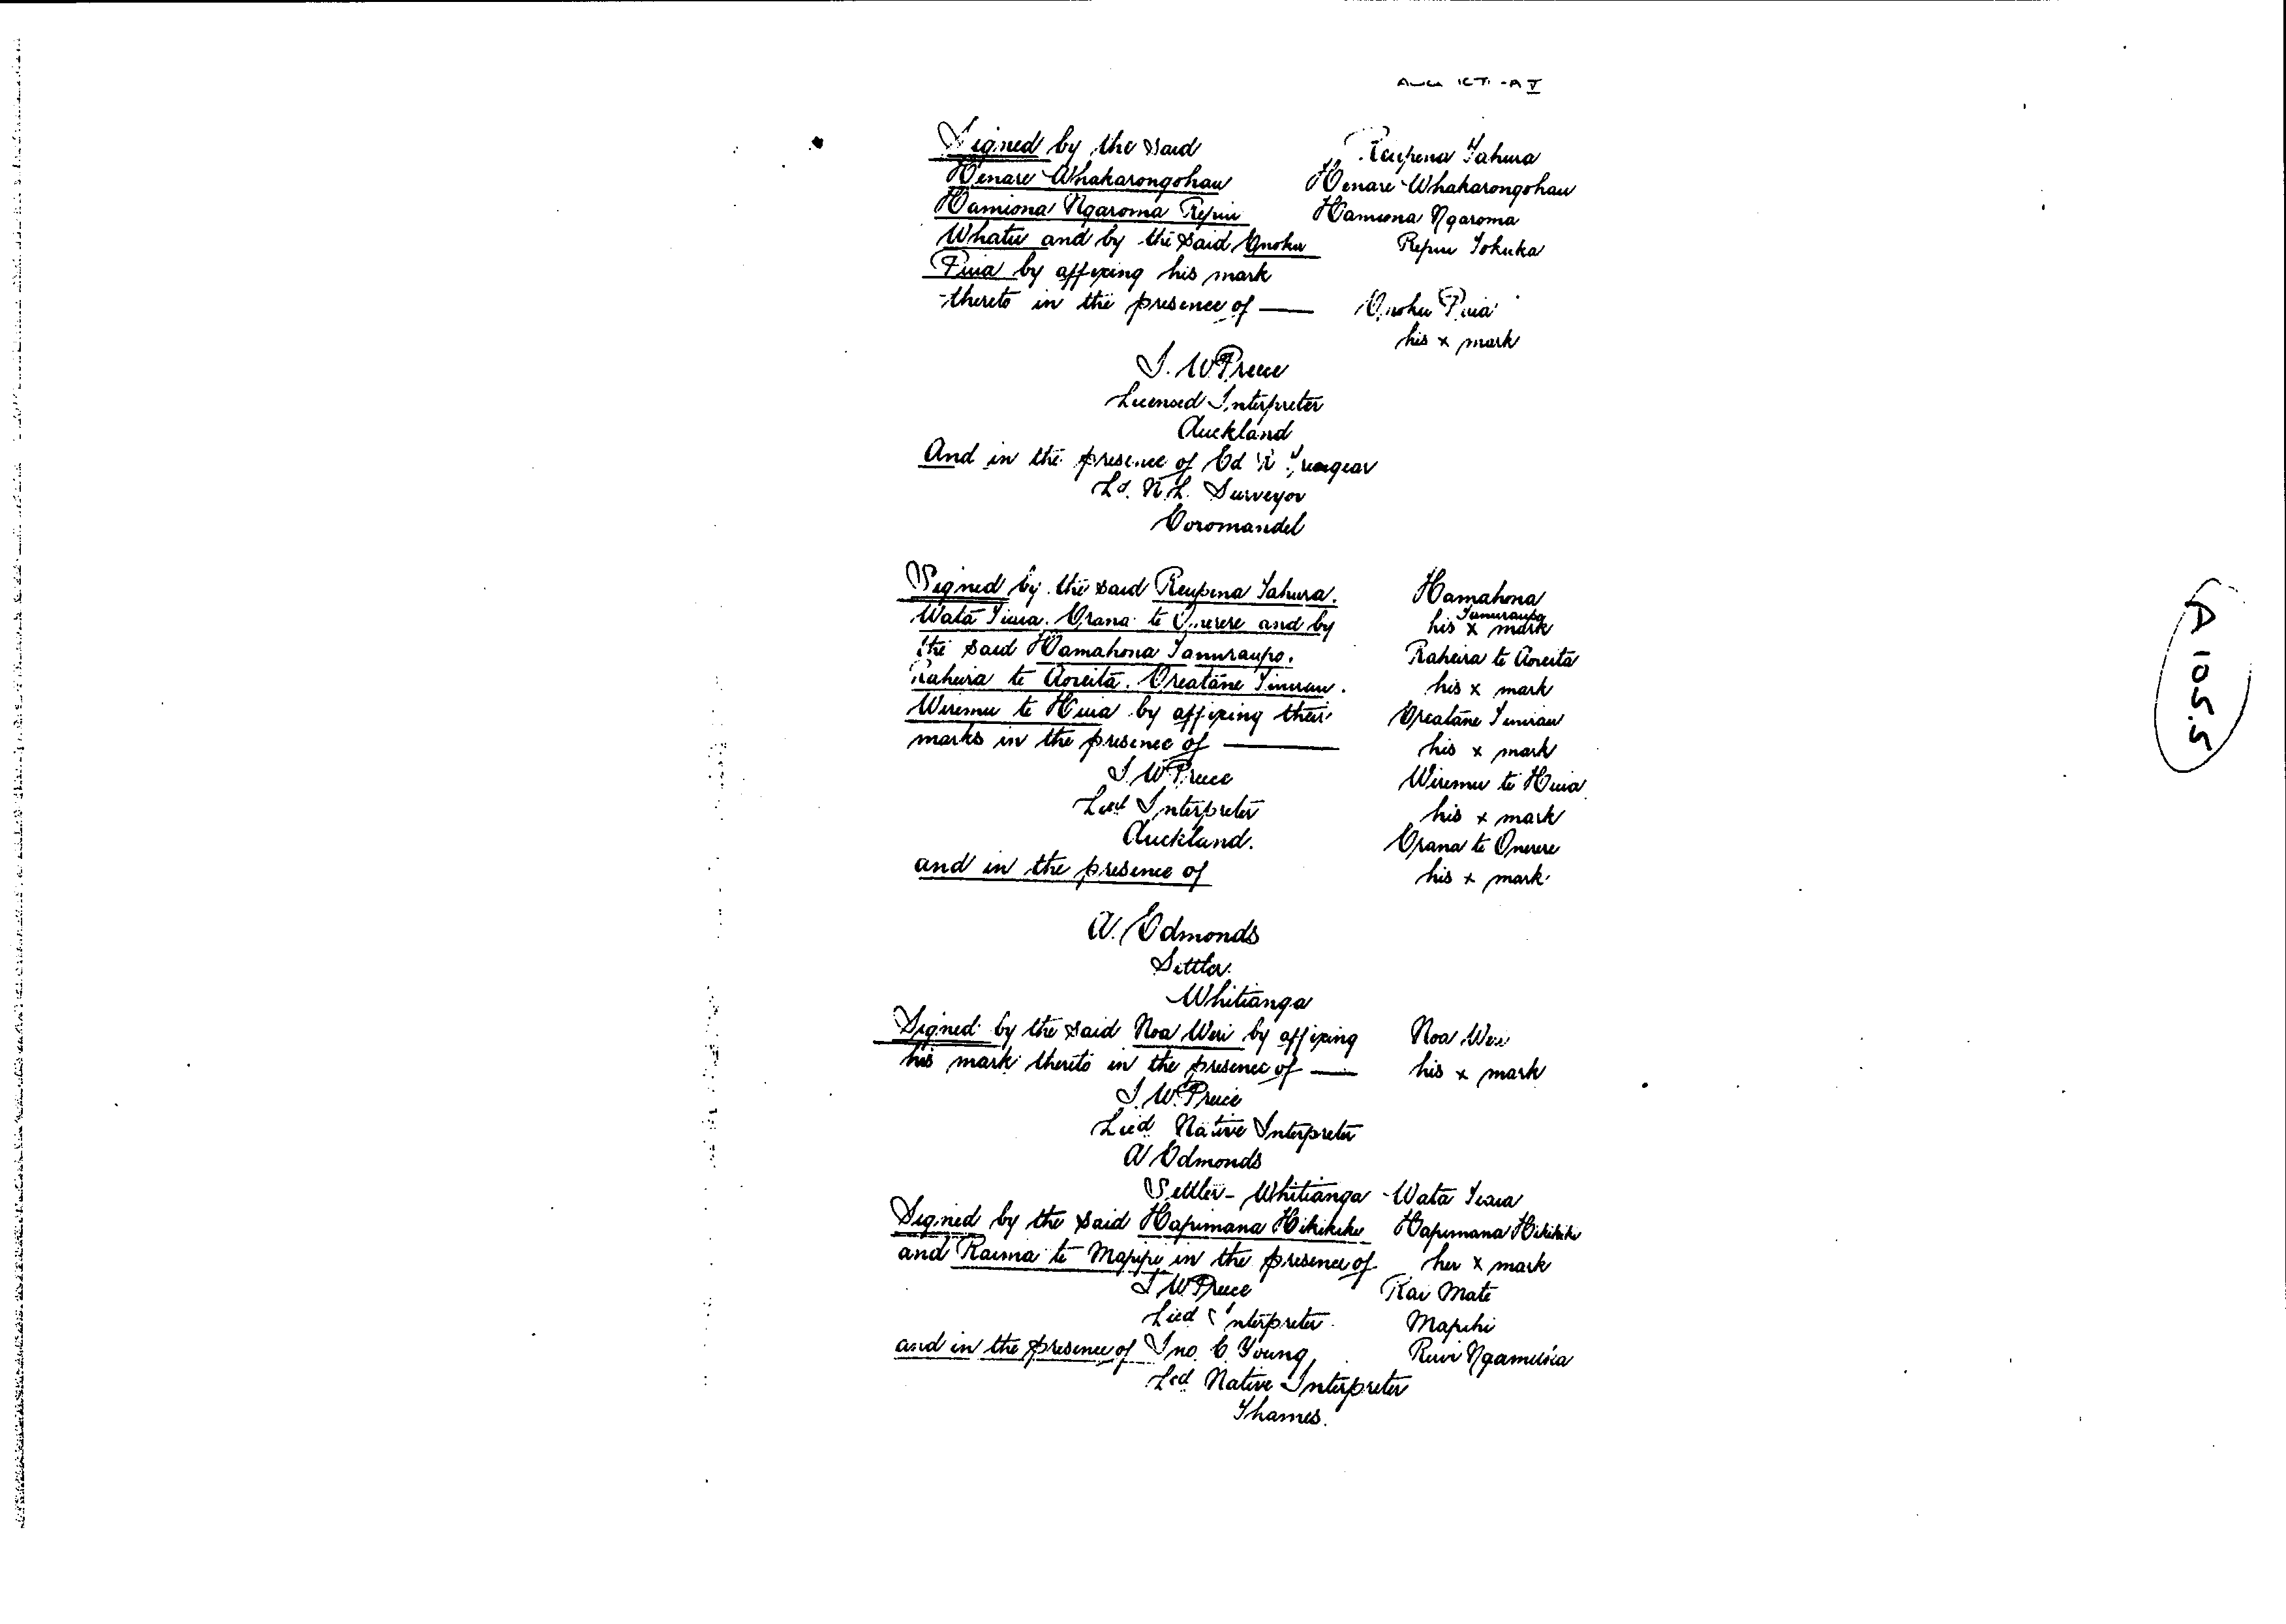 Signed by the said
Reupena Tahura
Henare Whakarongohau
Henare Whakarongohau
Hamiona Ngaroma Repiu
Hamiona Ngaroma
Whatu and by the said Onoku
Repiu Tokuka
Puia by affixing his mark
thereto in the presence of ——
Onoku Puia
his x mark
J. W Preece
Licensed Interpreter
Auckland
And in the presence of Ed
Ld. N. L. Surveyor
Coromandel
Signed by the said Reupena Tahura.
Hamahona
Tanuraupo
Wata Tiura. Orana te Onerere and by
his x mark
the said Hamahona Tanuraupo.
Raheira te Aoreita
Raheira te Aoreita. Oreatane Tiurau.
his x mark
Wiremu te Huia by affixing their
Oreatane Tiurau
marks in the presence of ——
his x mark
J. W Preece
Wiremu te Huia
Licd Interpreter
his x mark
Auckland.
Orana te Onerere
and in the presence of
his x mark
A. Edmonds
Settler.
Whitianga
Signed by the said Noa Weri by affixing
Noa Weri
his mark thereto in the presence of ——
his x mark
J. W. Preece
Licd Native Interpreter
A Edmonds
Settler - Whitianga
Wata Tiura
Signed by the said Hapimana Hikikiki
Hapimana Hikikiki
and Raima te Mapipi in the presence of
her x mark
J W Preece
Rai Mate
Licd Interpreter
Mapihi
and in the presence of Jno. C. Young,
Licd Native Interpreter
Thames.
A 105.5